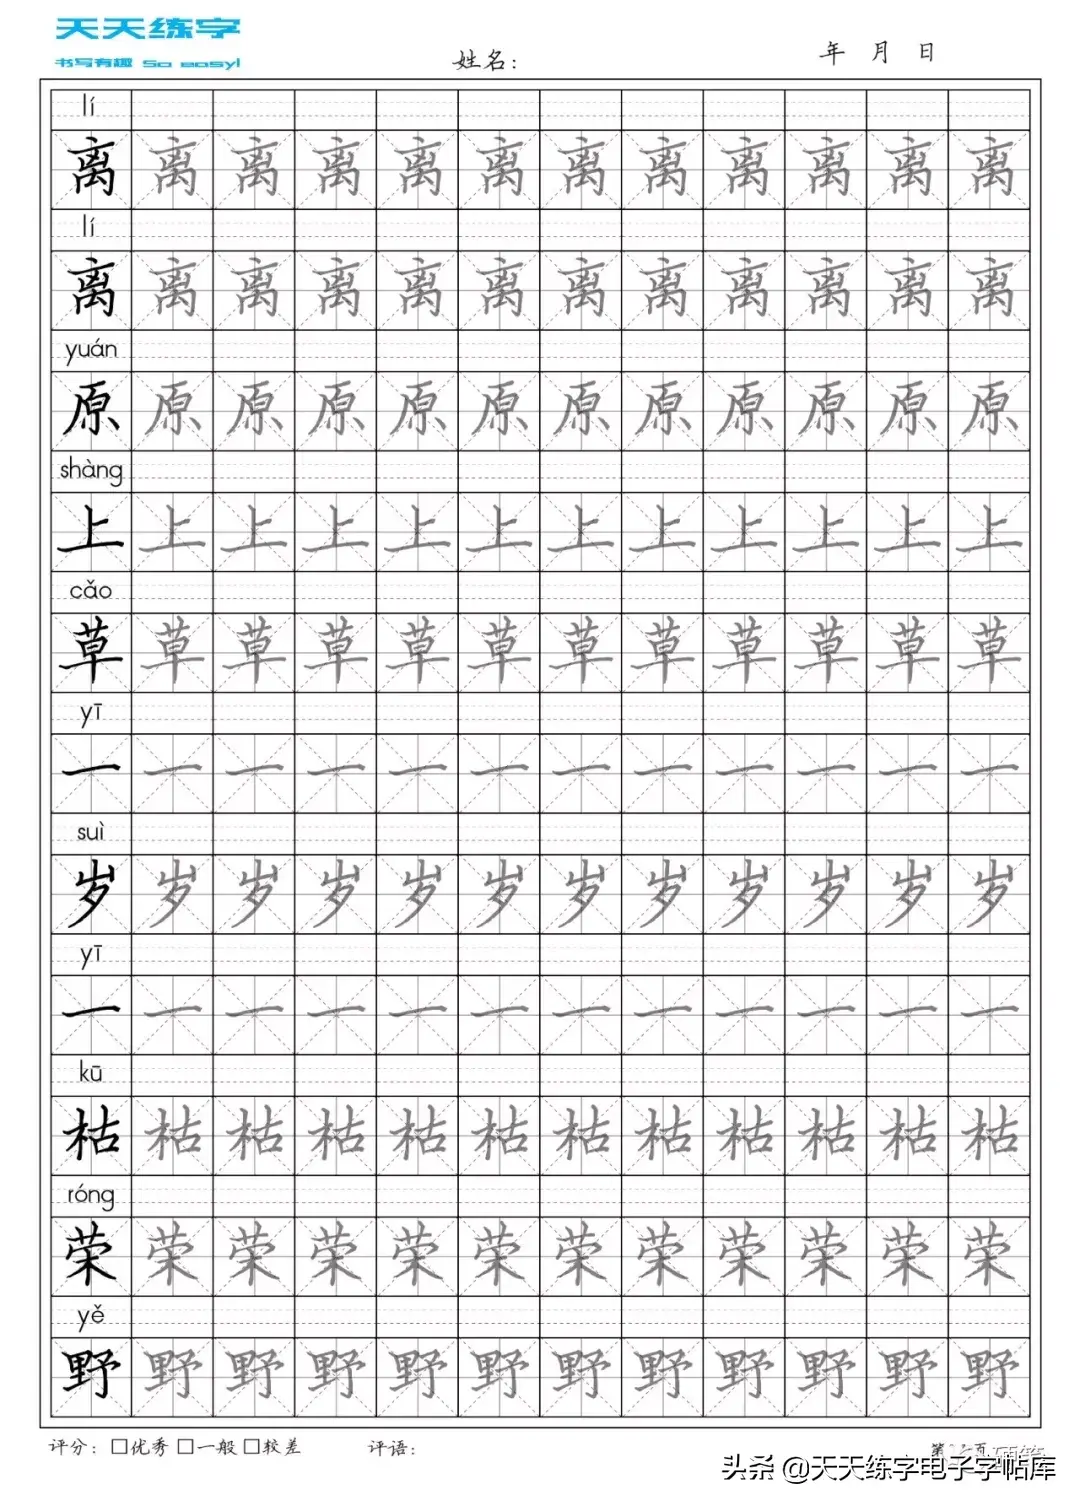 天天练字
书写有趣 So easy!
姓名: 年 月 日
lí
离 离 离 离 离 离 离 离 离 离 离 离
lí
离 离 离 离 离 离 离 离 离 离 离 离
yuán
原 原 原 原 原 原 原 原 原 原 原 原
shàng
上 上 上 上 上 上 上 上 上 上 上 上
cǎo
草 草 草 草 草 草 草 草 草 草 草 草
yī
一 一 一 一 一 一 一 一 一 一 一 一
suì
岁 岁 岁 岁 岁 岁 岁 岁 岁 岁 岁 岁
yī
一 一 一 一 一 一 一 一 一 一 一 一
kū
枯 枯 枯 枯 枯 枯 枯 枯 枯 枯 枯 枯
róng
荣 荣 荣 荣 荣 荣 荣 荣 荣 荣 荣 荣
yě
野 野 野 野 野 野 野 野 野 野 野 野
评分: □优秀 □一般 □较差 评语: 第 页
头条 @天天练字电子字帖库